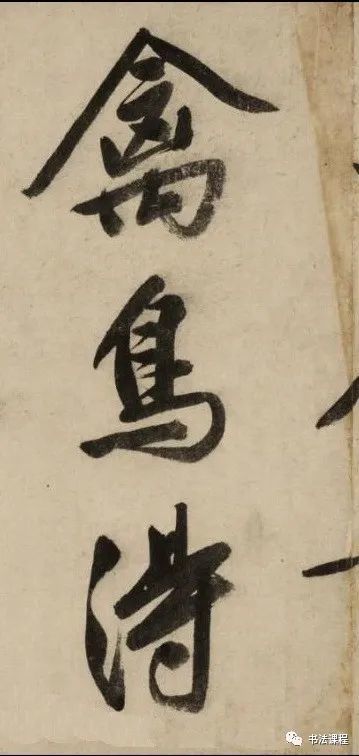 禽鳥得
书法课程